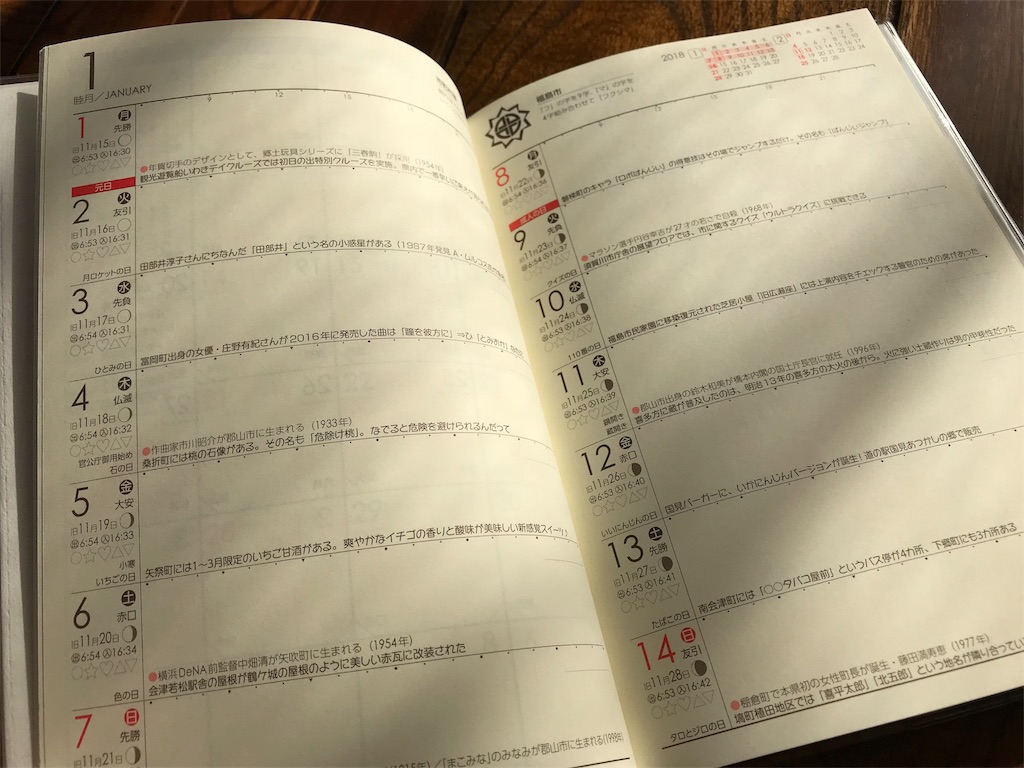 1
睦月／JANUARY
9
12
15
1
月
先勝
旧11月15日
6:53 入16:30
元日
●年賀切手のデザインとして、郷土玩具シリーズに「三春駒」が採用（1954年）
観光遊覧船いわきデイクルーズでは初日の出特別クルーズを実施。
2
火
友引
旧11月16日
6:53 入16:31
月ロケットの日
田部井淳子さんにちなんだ「田部井」という名の小惑星がある（1987年発見
3
水
先負
旧11月17日
6:54 入16:31
ひとみの日
富岡町出身の女優・庄野有紀さんが2016年に発売した曲は「瞳を彼方に」⇒ひ
4
木
仏滅
旧11月18日
6:54 入16:32
官公庁御用始め
石の日
●作曲家市川昭介が郡山市に生まれる（1933年）
桑折町には桃の石像がある。その名も「危除け桃」。なでると危険を避けられるんだって
5
金
大安
旧11月19日
6:54 入16:33
小寒
いちごの日
矢祭町には1～3月限定のいちご甘酒がある。爽やかなイチゴの香りと酸味が美味しい新感覚スイーツ
6
土
赤口
旧11月20日
6:54 入16:34
色の日
●横浜DeNA前監督中畑清が矢吹町に生まれる（1954年）
会津若松駅舎の屋根が鶴ケ城の屋根のように美しい赤瓦に改装された
7
日
先勝
旧11月21日
／「まこみな」のみなみが郡山市に生まれる（1998年）
2018 1 2
福島市
「フ」の字を9字、「マ」の字を
4字組み合わせて「フクシマ」
8
月
友引
旧11月22日
6:54 入16:36
成人の日
磐梯町のキャラ「ロボばんじぃ」の得意技はその場でジャンプするだけ。その名も「ばんじぃジャンプ」
9
火
先負
旧11月23日
6:54 入16:37
クイズの日
●マラソン選手円谷幸吉が27才の若さで自殺（1968年）
須賀川市庁舎の展望フロアでは、市に関するクイズ「ウルトラクイズ」に挑戦できる
10
水
仏滅
旧11月24日
6:53 入16:38
110番の日
福島市民家園に移築復元された芝居小屋「旧広瀬座」には上演内容をチェックする警官のための席があった
11
木
大安
旧11月25日
6:53 入16:39
鏡開き
蔵開き
●郡山市出身の鈴木和美が橋本内閣の国土庁長官に就任（1996年）
喜多方に蔵が普及したのは、明治13年の喜多方の大火の後から。火に強い土蔵作りは男の甲斐性だった
12
金
赤口
旧11月26日
6:53 入16:40
いいにんじんの日
国見バーガーに、いかにんじんバージョンが誕生！道の駅国見あつかしの郷で販売
13
土
先勝
旧11月27日
6:53 入16:41
たばこの日
南会津町には「○○タバコ屋前」というバス停が4か所、下郷町にも3か所ある
14
日
友引
旧11月28日
6:53 入16:42
タロとジロの日
●棚倉町で本県初の女性町長が誕生・藤田満寿恵（1977年）
塙町植田地区では「喜平太郎」「北五郎」という地名が隣り合ってい